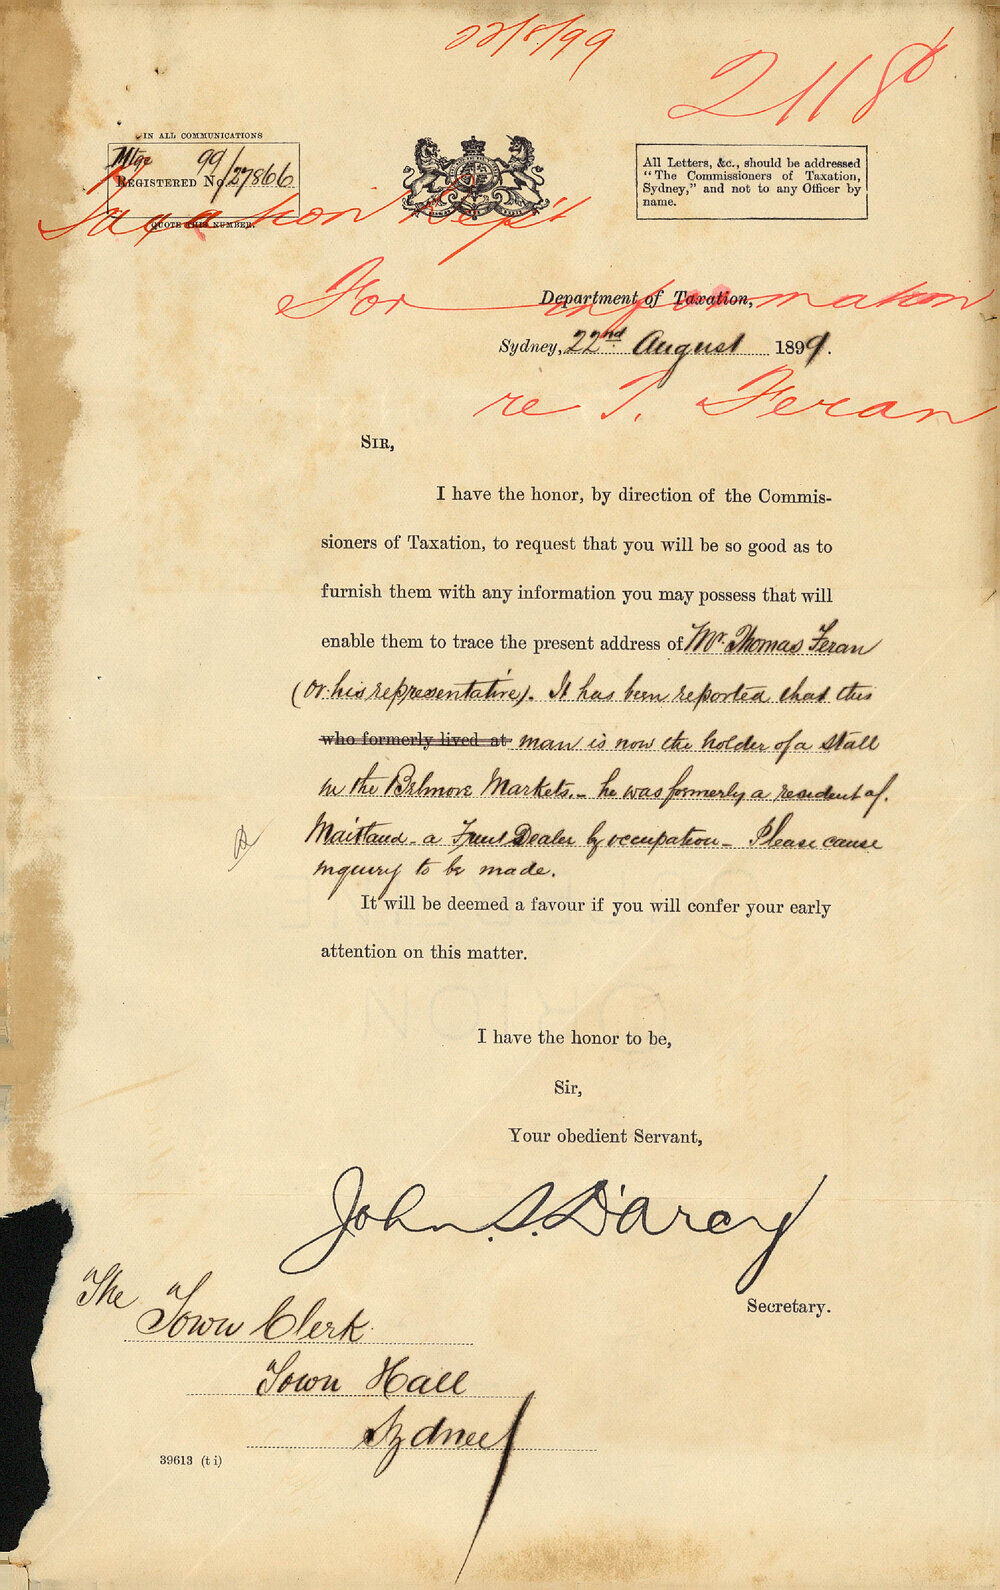 22/8/99
2118
IN ALL COMMUNICATIONS
Mtge 99/27866
REGISTERED No.
QUOTE THIS NUMBER.
All Letters, &c., should be addressed
"The Commissioners of Taxation,
Sydney," and not to any Officer by
name.
Taxation Dep't
For information
Department of Taxation,
Sydney, 22nd August 1899.
re T. Feran
SIR,
I have the honor, by direction of the Commis-
sioners of Taxation, to request that you will be so good as to
furnish them with any information you may possess that will
enable them to trace the present address of Mr. Thomas Feran
(or his representative). It has been reported that this
who formerly lived at man is now the holder of a stall
in the Belmore Markets. - he was formerly a resident of.
Maitland - a Fruit Dealer by occupation - Please cause
inquiry to be made.
It will be deemed a favour if you will confer your early
attention on this matter.
I have the honor to be,
Sir,
Your obedient Servant,
John S. D'Arcy
Secretary.
The
Town Clerk
Town Hall
Sydney
39613 (t i)